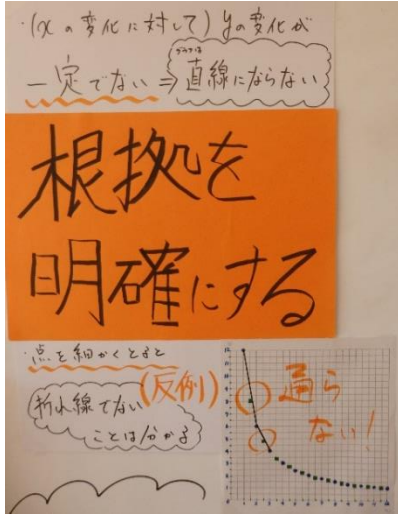 ・(xの変化に対して)yの変化が
一定でない⇒グラフは直線にならない
根拠を
明確にする
・点を細かくとると
折れ線でない
ことは分かる
(反例)
通ら
ない!